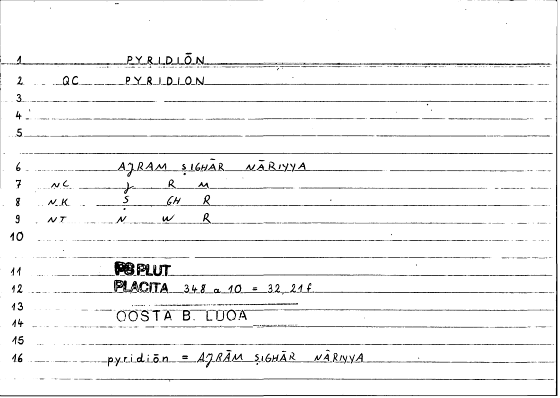 1 PYRIDIŌN
2 QC PYRIDION
3
4
5
6 AJRAM ṢIGHĀR NĀRIYYA
7 NC J R M
8 N.K. Ṣ GH R
9 NT N W R
10
11 PS PLUT
12 PLACITA 348 a 10 = 32, 21f.
13
14 QOSTA B. LUQA
15
16 pyridiōn = AJRĀM ṢIGHĀR NĀRIYYA